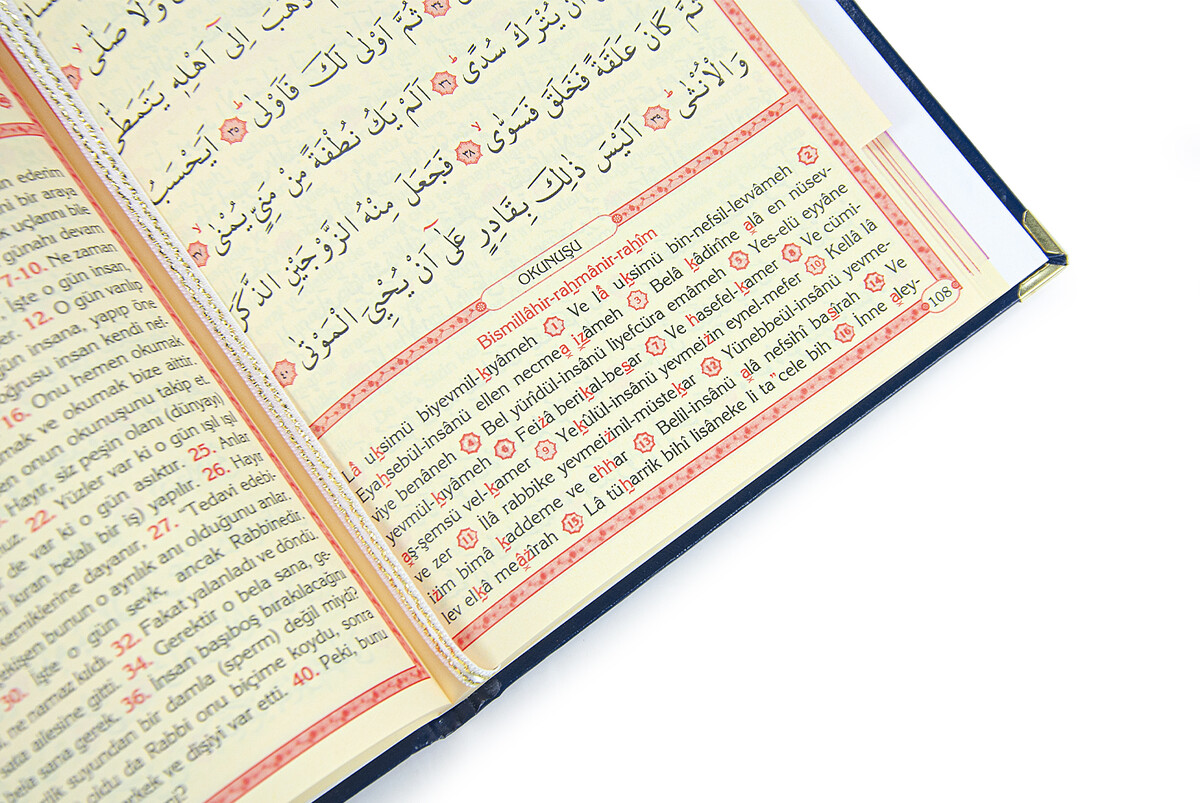 وَلَا صَلّٰى
ذَهَبَ اِلٰٓى اَهْلِه۪ يَتَمَطّٰى
ثُمَّ اَوْلٰى لَكَ فَاَوْلٰى ٣٥ اَيَحْسَبُ
اَنْ يُتْرَكَ سُدًى ٣٦ اَلَمْ يَكُ نُطْفَةً مِنْ مَنِيٍّ يُمْنٰى ٣٧
ثُمَّ كَانَ عَلَقَةً فَخَلَقَ فَسَوّٰى ٣٨ فَجَعَلَ مِنْهُ الزَّوْجَيْنِ الذَّكَرَ
وَالْاُنْثٰى ٣٩ اَلَيْسَ ذٰلِكَ بِقَادِرٍ عَلٰٓى اَنْ يُحْيِيَ الْمَوْتٰى ٤٠
OKUNUŞU
Bismillâhir-rahmânir-rahîm
Lâ uksimü biyevmil-kıyâmeh 1 Ve lâ uksimü bin-nefsil-levvâmeh 2
Eyahsebül-insânü ellen necmea izâmeh 3 Belâ kâdirîne alâ en nüsev-
viye benâneh 4 Bel yürîdül-insânü liyefcüra emâmeh 5 Yes-elü eyyâne
yevmül-kıyâmeh 6 Feizâ berikal-besar 7 Ve hasefel-kamer 8 Ve cümi-
aş-şemsü vel-kamer 9 Yekûlül-insânü yevmeizin eynel-mefer 10 Kellâ lâ
ve zer 11 İlâ rabbike yevmeizinil-müstekar 12 Yünebbeül-insânü yevme-
izim bimâ kaddeme ve ehhar 13 Belil-insânü alâ nefsihî basîrah 14 Ve
lev elkâ meâzîrah 15 Lâ tüharrik bihî lisâneke li ta"cele bih 16 İnne aley-
108
ederim
ni bir araya
k uçlarını bile
günahı devam
7-10. Ne zaman
İşte o gün insan,
12. O gün varılıp
gün insana, yapıp öne
oğrusu insan kendi nef-
16. Onu hemen okumak
mak ve okumak bize aittir.
en onun okunuşunu takip et.
Hayır, siz peşin olanı (dünyayı)
22. Yüzler var ki o gün ışıl ışıl
de var ki o gün asıktır. 25. Anlar
kıran belalı bir iş) yapılır. 26. Hayır
kemiklerine dayanır, 27. "Tedavi edebi-
bunun o ayrılık anı olduğunu anlar.
30. İşte o gün sevk, ancak Rabbinedir.
ne namaz kıldı. 32. Fakat yalanladı ve döndü.
ailesine gitti. 34. Gerektir o bela sana, ge-
bela sana gerek. 36. İnsan başıboş bırakılacağını
suyundan bir damla (sperm) değil miydi?
oldu da Rabbi onu biçime koydu, sonra
erkek ve dişiyi var etti. 40. Peki, bunu